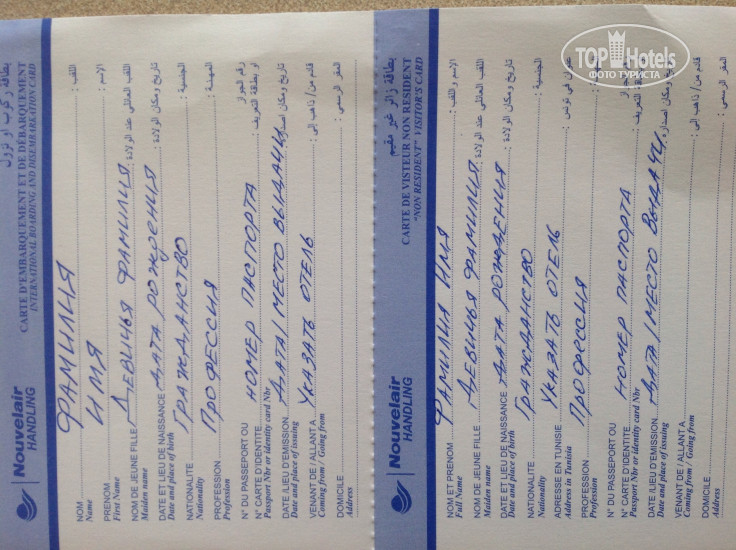 Nouvelair
HANDLING
CARTE D'EMBARQUEMENT ET DE DÉBARQUEMENT
INTERNATIONAL BOARDING AND DISEMBARKATION CARD
بطاقة ركوب او نزول
NOM ФАМИЛИЯ : اللقب
Name
PRENOM ИМЯ : الاسم
First Name
NOM DE JEUNE FILLE ДЕВИЧЬЯ ФАМИЛИЯ : اللقب العائلي عند الولادة
Maiden name
DATE ET LIEU DE NAISSANCE ДАТА РОЖДЕНИЯ : تاريخ ومكان الولادة
Date and place of birth
NATIONALITE ГРАЖДАНСТВО : الجنسية
Nationality
PROFESSION ПРОФЕССИЯ : المهنة
Profession
N° DU PASSEPORT OU رقم الجواز
N° CARTE D'IDENTITE НОМЕР ПАСПОРТА : او بطاقة التعريف
Passport Nbr or identity card Nbr
DATE /LIEU D'EMISSION ДАТА/МЕСТО ВЫДАЧИ : تاريخ ومكان اصدارها
Date and place of issuing
VENANT DE / ALLANT A УКАЗАТЬ ОТЕЛЬ : قادم من / ذاهب الى
Coming from / Going from
DOMICILE : المقر الرسمي
Address
Nouvelair
HANDLING
CARTE DE VISITEUR NON RESIDENT
"NON RESIDENT" VISITOR'S CARD
بطاقة زائر غير مقيم
NOM ET PRENOM ФАМИЛИЯ ИМЯ : الاسم و اللقب
Full Name
NOM DE JEUNE FILLE ДЕВИЧЬЯ ФАМИЛИЯ : اللقب العائلي عند الولادة
Maiden name
DATE ET LIEU DE NAISSANCE ДАТА РОЖДЕНИЯ : تاريخ ومكان الولادة
Date and place of birth
NATIONALITE ГРАЖДАНСТВО : الجنسية
Nationality
ADRESSE EN TUNISIE УКАЗАТЬ ОТЕЛЬ : في تونس
Address in Tunisia
PROFESSION ПРОФЕССИЯ
Profession
N° DU PASSEPORT OU الجواز
N° CARTE D'IDENTITE НОМЕР ПАСПОРТА : التعريف
Passport Nbr or identity card Nbr
DATE /LIEU D'EMISSION ДАТА/МЕСТО ВЫДАЧИ : تاريخ ومكان اصدارها
Date and place of issuing
VENANT DE / ALLANT A : قادم من / ذاهب الى
Coming from / Going from
DOMICILE : المقر الرسمي
Address
TOP Hotels
ФОТО ТУРИСТА